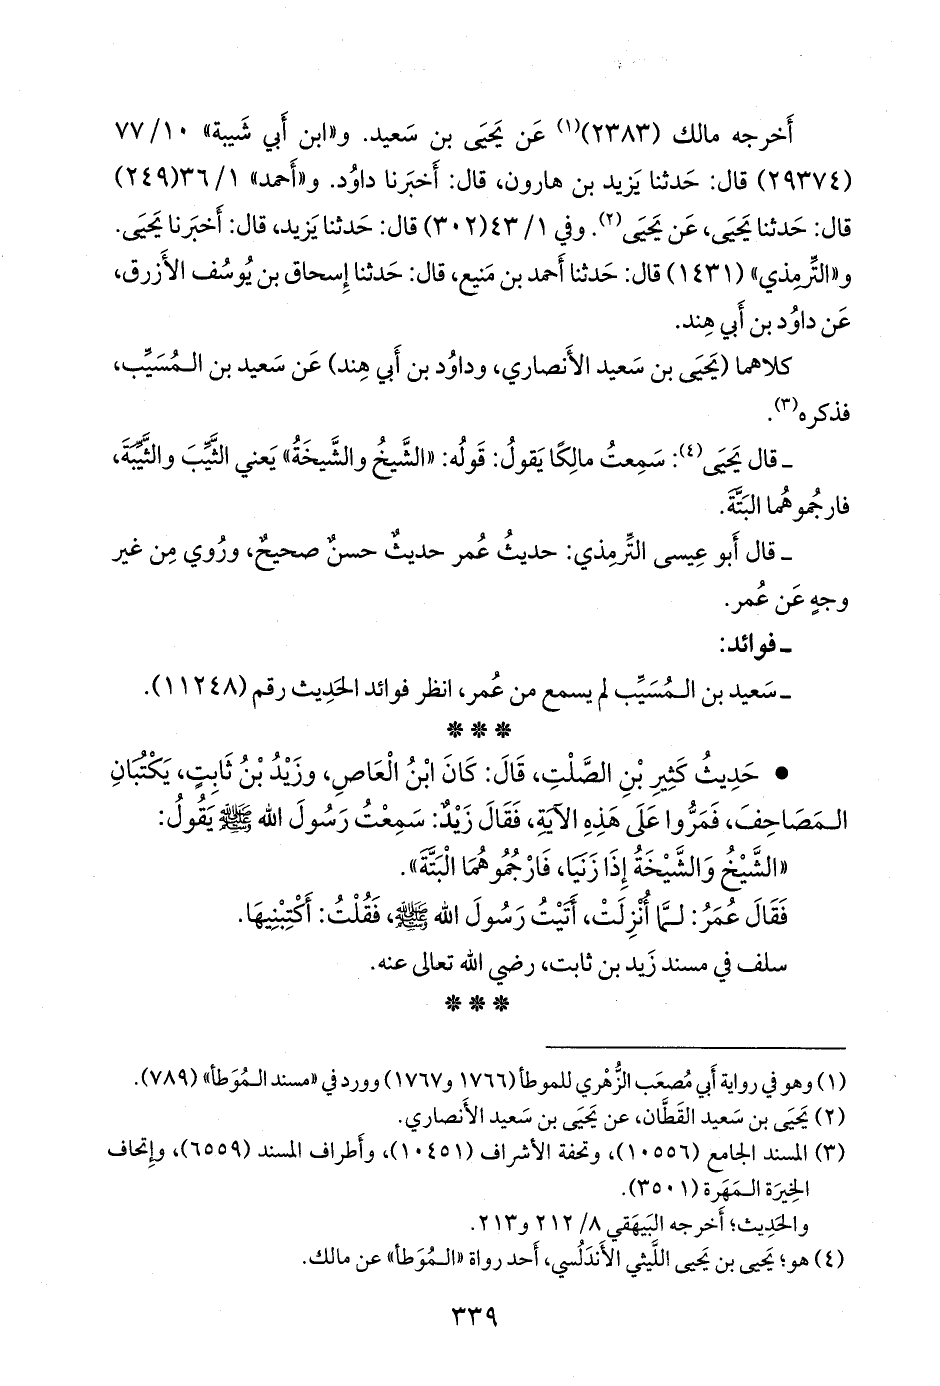 أَخرجه مالك (٢٣٨٣)(١) عَن يَحيَى بن سَعيد. و«ابن أَبي شَيبة» ١٠/ ٧٧
(٢٩٣٧٤) قال: حَدثنا يَزيد بن هارون، قال: أَخبَرنا داوُد. و«أَحمد» ١/ ٣٦(٢٤٩)
قال: حَدثنا يَحيَى، عَن يَحيَى(٢). وفي ١/ ٤٣(٣٠٢) قال: حَدثنا يَزيد، قال: أَخبَرنا يَحيَى.
و«التِّرمِذي» (١٤٣١) قال: حَدثنا أَحمد بن مَنيع، قال: حَدثنا إِسحاق بن يُوسُف الأَزرق،
عَن داوُد بن أَبي هِند.
كلاهما (يَحيَى بن سَعيد الأَنصاري، وداوُد بن أَبي هِند) عَن سَعيد بن الـمُسَيِّب،
فذكره(٣).
ـ قال يَحيَى(٤): سَمِعتُ مالِكًا يَقولُ: قَولُه: «الشَّيخُ والشَّيخَةُ» يَعني الثَّيِّبَ والثَّيِّبَةَ،
فارجُموهُما البَتَّةَ.
ـ قال أَبو عِيسى التِّرمِذي: حديثُ عُمر حديثٌ حسنٌ صحيحٌ، ورُوي مِن غير
وجهٍ عَن عُمر.
ـ فوائد:
ـ سَعيد بن الـمُسَيِّب لم يسمع من عُمر، انظر فوائد الحَديث رقم (١١٢٤٨).
* * *
● حَدِيثُ كَثِيرِ بْنِ الصَّلْتِ، قَالَ: كَانَ ابْنُ الْعَاصِ، وزَيْدُ بْنُ ثَابِتٍ، يَكْتُبَانِ
الـمَصَاحِفَ، فَمَرُّوا عَلَى هَذِهِ الآيَةِ، فَقَالَ زَيْدٌ: سَمِعْتُ رَسُولَ الله ﷺ يَقُولُ:
«الشَّيْخُ وَالشَّيْخَةُ إِذَا زَنَيَا، فَارْجُمُوهُمَا الْبَتَّةَ».
فَقَالَ عُمَرُ: لـمَّا أُنْزِلَتْ، أَتَيْتُ رَسُولَ الله ﷺ، فَقُلْتُ: أَكْتِبْنِيهَا.
سلف في مسند زَيد بن ثابت، رضي الله تعالى عنه.
* * *
(١) وهو في رواية أَبي مُصعَب الزُّهْري للموطأ (١٧٦٦ و١٧٦٧) وورد في «مسند الـمُوَطأ» (٧٨٩).
(٢) يَحيَى بن سَعيد القَطَّان، عن يَحيَى بن سَعيد الأَنصاري.
(٣) المسند الجامع (١٠٥٥٦)، وتحفة الأشراف (١٠٤٥١)، وأطراف المسند (٦٥٥٩)، وإتحاف
الخِيرَة الـمَهَرة (٣٥٠١).
والحَديث؛ أَخرجه البَيهَقي ٨/ ٢١٢ و٢١٣.
(٤) هو؛ يَحيى بن يَحيى اللَّيثي الأَندَلُسي، أَحد رواة «الـمُوَطأ» عن مالك.
٣٣٩